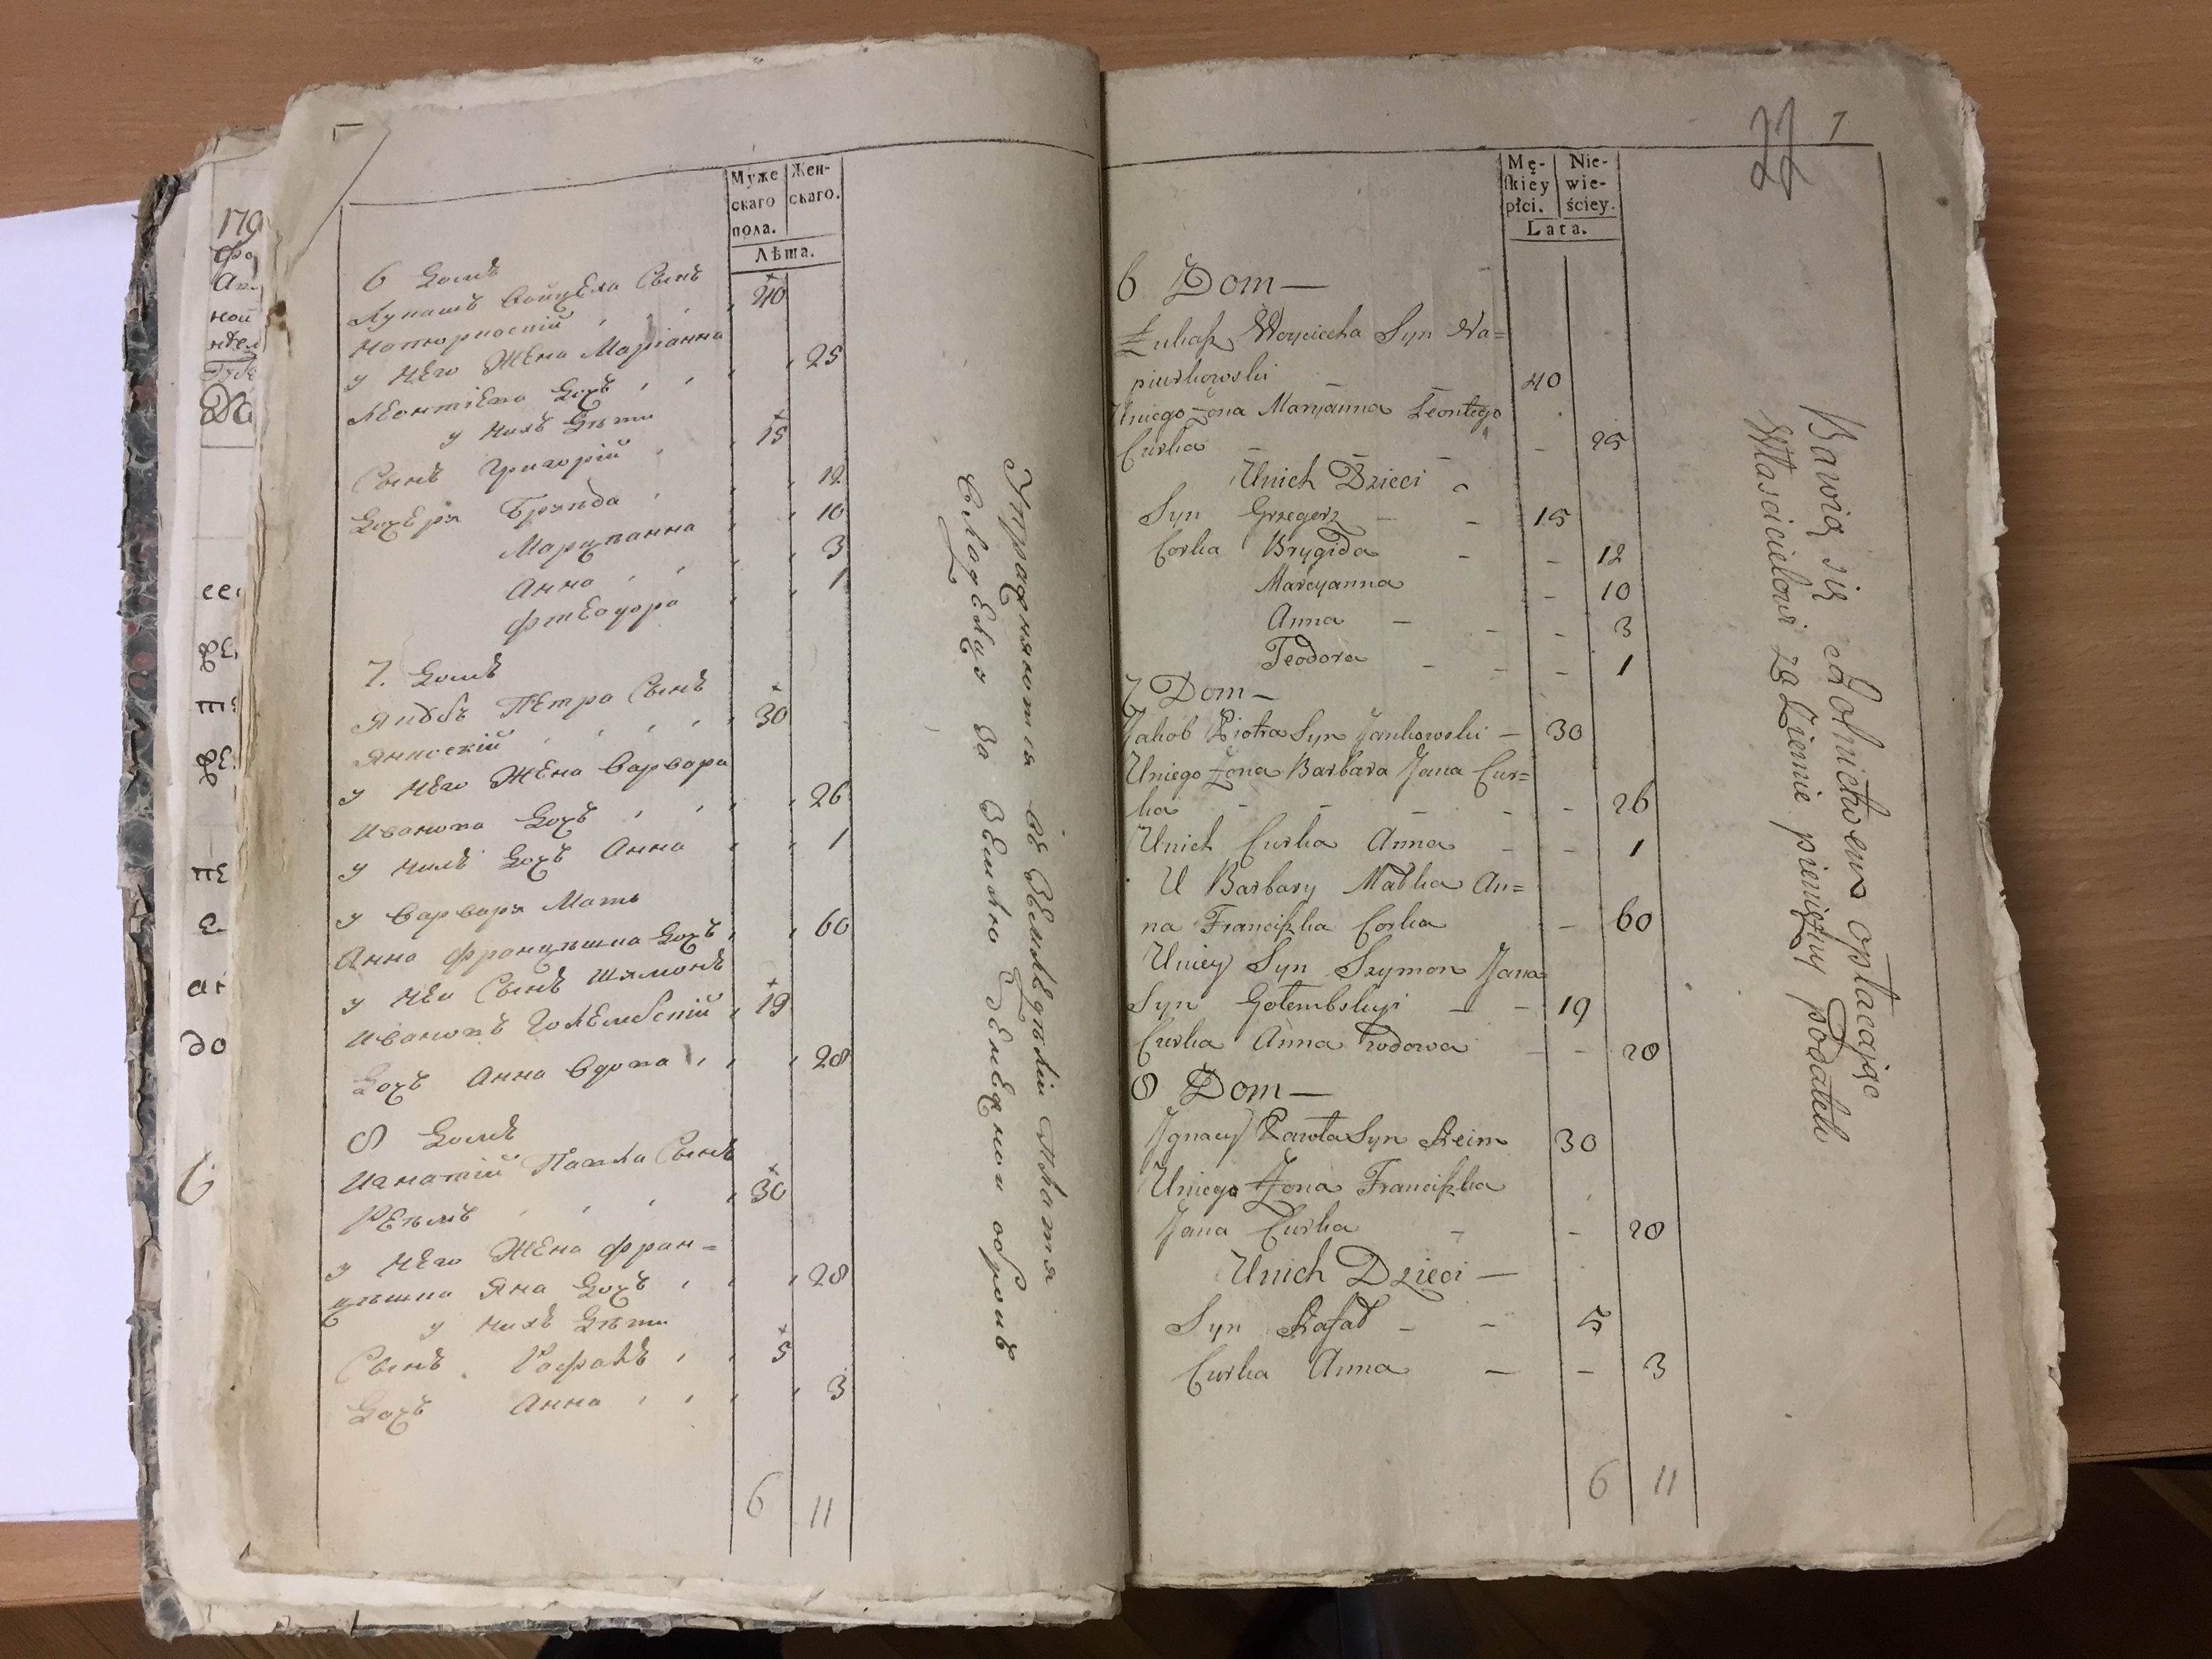 179
ной
Муже
скаго
пола.
Жен-
скаго.
Лѣта.
6 Домъ
Лукашъ Войцеха Сынъ
Напюрковскій 40
у него Жена Маріанна
Леонтіева Дочь 25
у нихъ Дѣти
Сынъ Григорій 15
Дочери Бригида 12
Марцианна 10
Анна 3
Фтеодора 1
7. Домъ
Якубъ Петра Сынъ
Янковскій 30
у него Жена Варвара
Иванова Дочь 26
у нихъ Дочь Анна 1
у Варвары Мать
Анна Францишка Дочь 60
у неи Сынъ Шимонъ
Ивановъ Голембскій 19
Дочь Анна Вдова 28
8 Домъ
Игнатій Павла Сынъ
Реймъ 30
у него Жена Фран=
цишка Яна Дочь 28
у нихъ Дѣти
Сынъ Рафалъ 5
Дочь Анна 3
6 11
Упражняются въ Земледѣліи платя
Сладельцу за Землю денежной оброкъ
22 7
Mę-
skiey
płci.
Nie-
wie-
ściey.
Lata.
6 Dom —
Łukasz Woyciecha Syn Na=
piurkowski 40
Uniego Żona Maryanna Leontego
Curka - 25
Unich Dzieci
Syn Grzegorz - - 15
Corka Brygida - - 12
Marcyanna - 10
Anna - - - 3
Teodora - - - 1
7 Dom —
Jakob Piotra Syn Jankowski — 30
Uniego Żona Barbara Jana Cur=
ka - - - - - 26
Unich Curka Anna - - 1
U Barbary Matka An=
na Franciszka Corka - 60
Uniey Syn Szymon Jana
Syn Gołembskyi - - 19
Curka Anna wdowa - - 28
8 Dom —
Ignacy Pawła Syn Reim 30
Uniego Żona Franciszka
Jana Curka - - 28
Unich Dzieci —
Syn Rafał - - 5
Curka Anna — - 3
6 11
Bawią się Rolnictwem opłacając
Włascicielowi za Ziemie pieniężny podatek